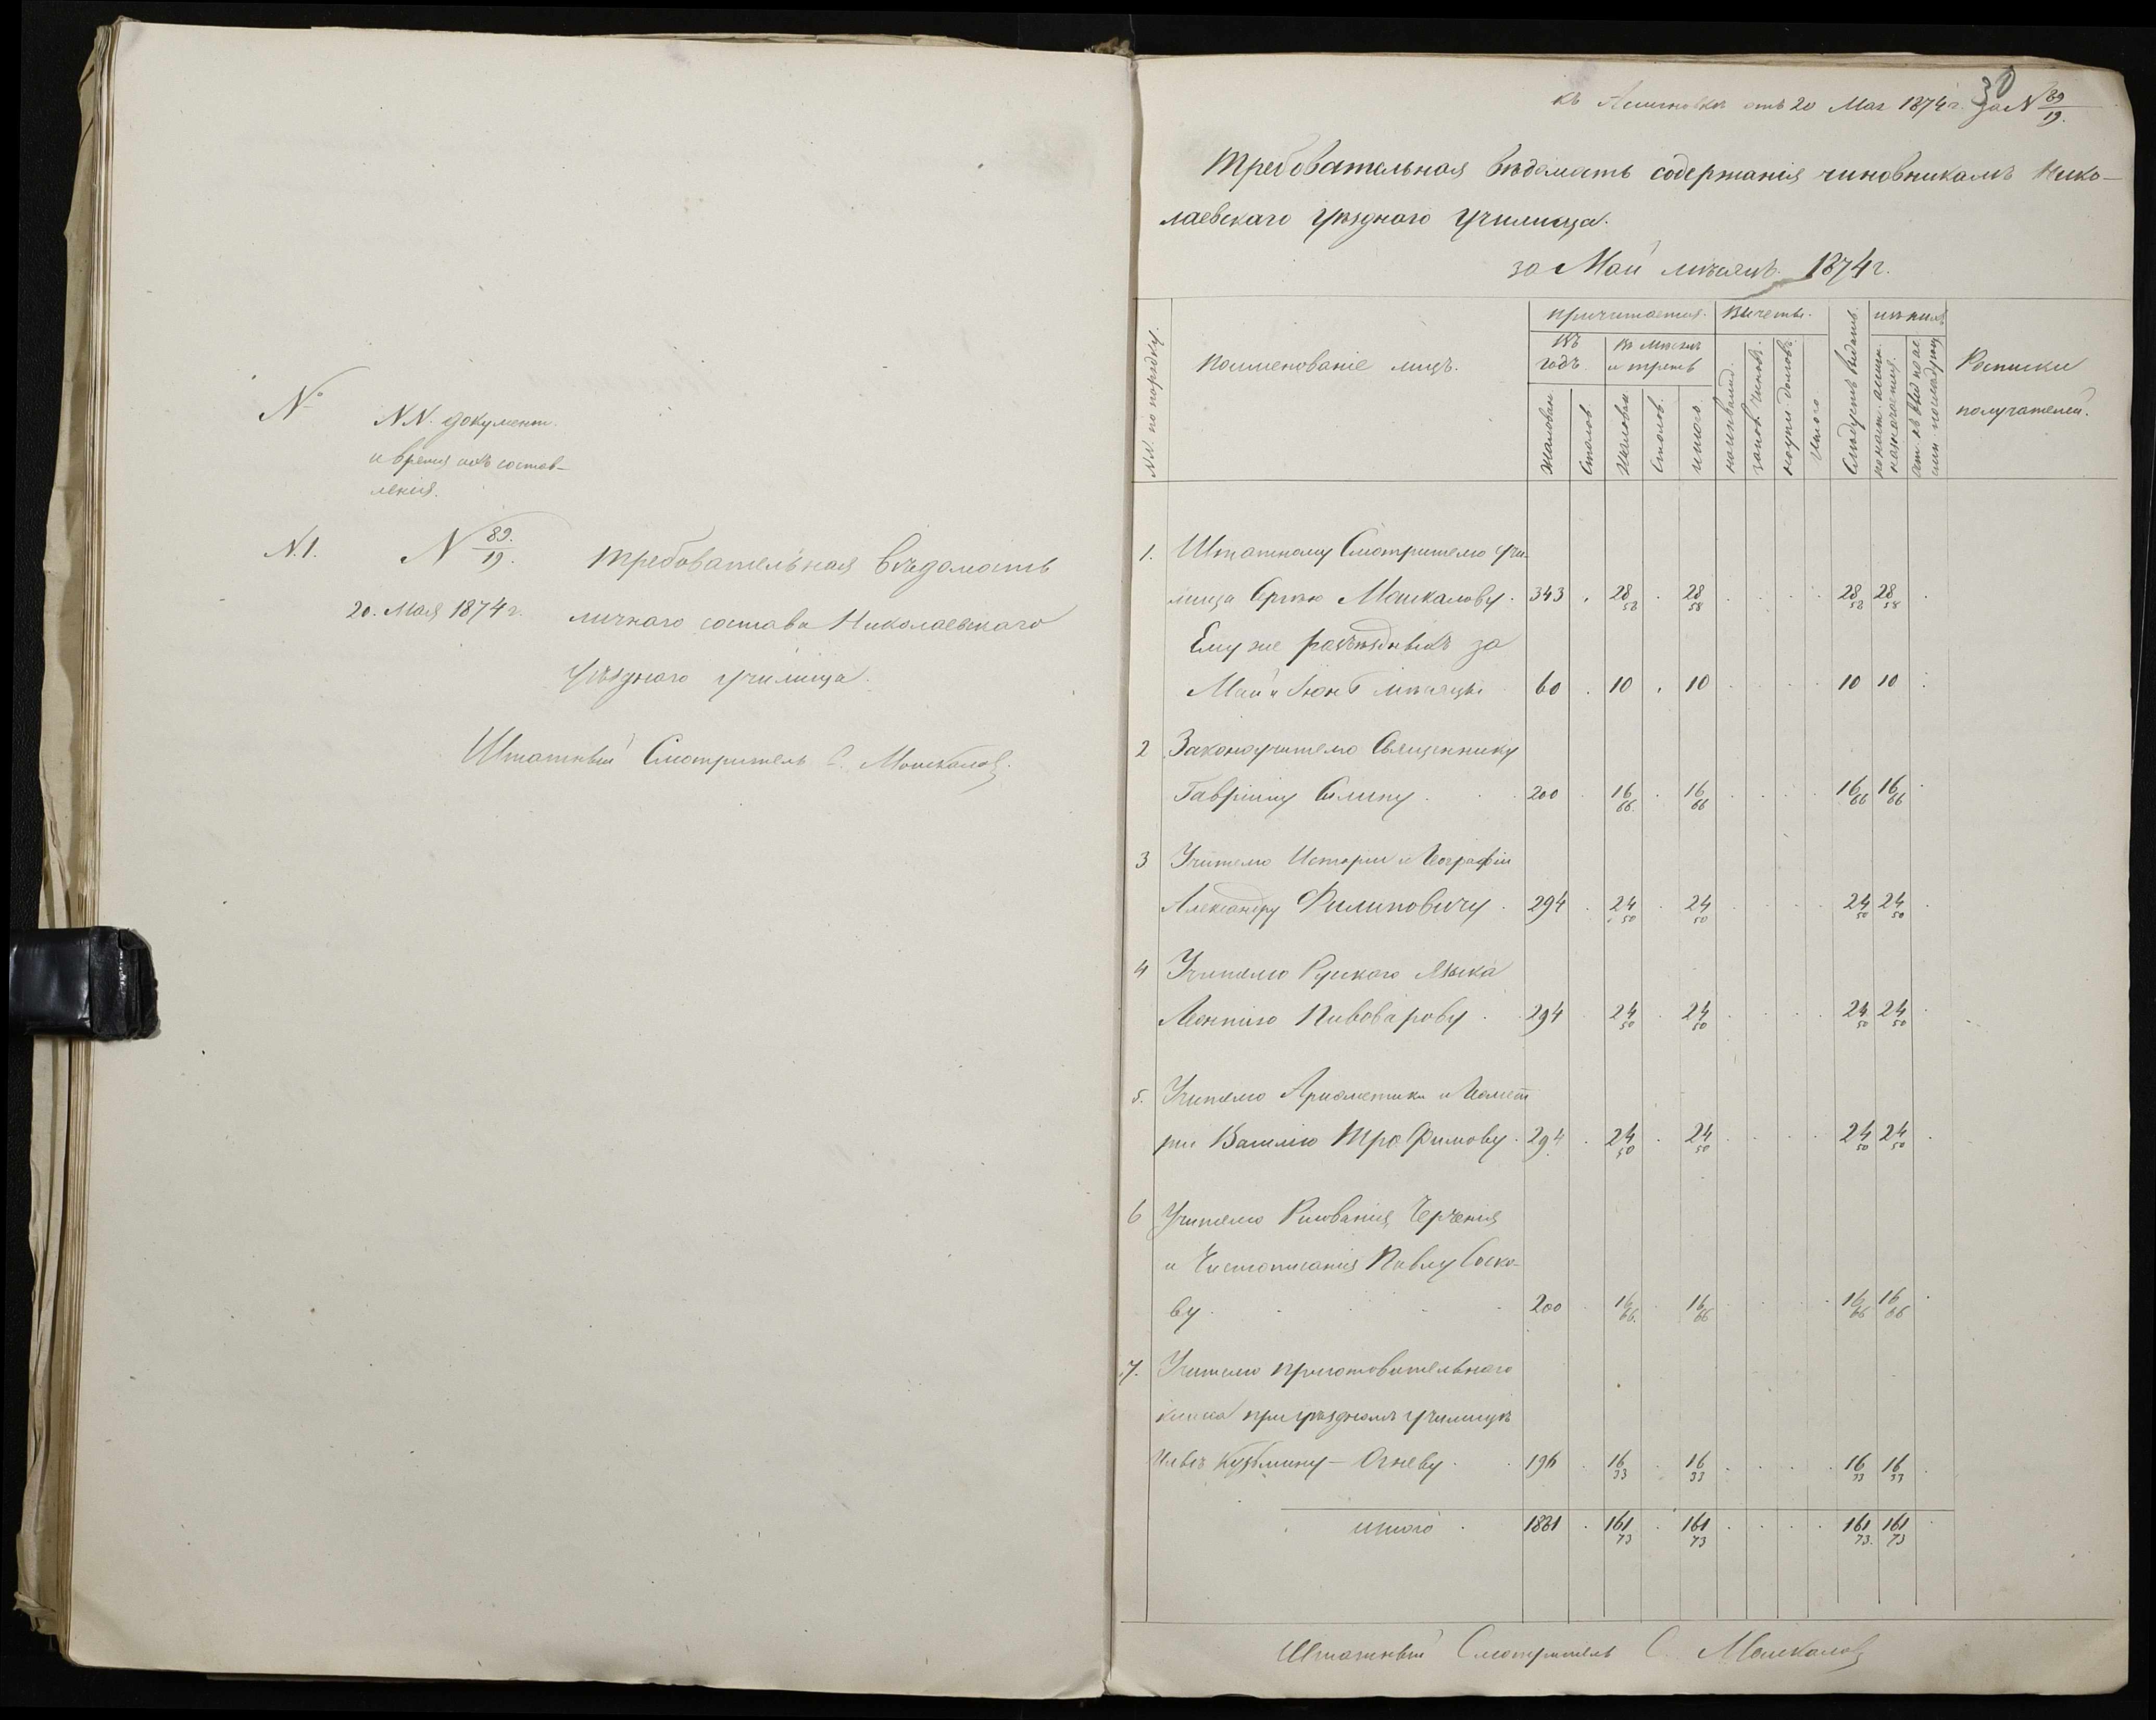 №
NN. документ.
и время ихъ состав-
ленія.
N.1.
N 89./19.
20. Мая 1874 г.
Требовательная вѣдомость
личнаго состава Николаевскаго
Уѣзднаго училища.
Штатный Смотритель С. Москалов
30
къ Ассигновкѣ отъ 20 Мая 1874 г. за N 89/19.
Требовательная вѣдомость содержанія чиновникамъ Нико-
лаевскаго Уѣзднаго Училища.
за Май мѣсяцъ 1874 г.
N.N. по порядку.
Поименованіе лицъ.
причитается.
Въ годъ.
Въ мѣсяцъ и треть
Жалован.
Столов.
Жалован.
Столов.
итого.
Вычеты.
на инвалид.
за пов. чиновъ.
на упл. долговъ.
Итого
Слѣдуетъ выдать.
изъ нихъ
по наст. ассигн. назначается.
Росписки
получателей.
1. Штатному Смотрителю Учи-
лища Сергѣю Москалову. 343 . 28 58 . 28 58 . . . . 28 58 28 58 .
Ему же разъѣздныхъ за
Май и Іюнь мѣсяцы. 60 . 10 . 10 . . . . 10 10 .
2 Законоучителю Священнику
Гавріилу Селину . . . 200 . 16 66. . 16 66 . . . . 16 66 16 66 .
3 Учителю Исторіи и Географіи
Александру Филиповичу . 294 . 24 50 . 24 50 . . . . 24 50 24 50 .
4 Учителю Рускаго Языка
Леонтію Пивоварову . . 294 . 24 50 . 24 50 . . . . 24 50 24 50 .
5. Учителю Ариѳметики и Геомет
ріи Василію Трофимову . 294 . 24 50 . 24 50 . . . . 24 50 24 50 .
6 Учителю Рисованія, Черченія
и Чистописанія Павлу Соско-
ву . . . . . 200 . 16 66. . 16 66 . . . . 16 66 16 66 .
7. Учителю приготовительнаго
класса при уѣздномъ училищѣ
Ильѣ Кузьмину-Огневу . . 196 . 16 33 . 16 33 . . . . 16 33 16 33 .
итого . 1881 . 161 73 . 161 73 . . . . 161 73. 161 73 .
Штатный Смотритель С. Москалов